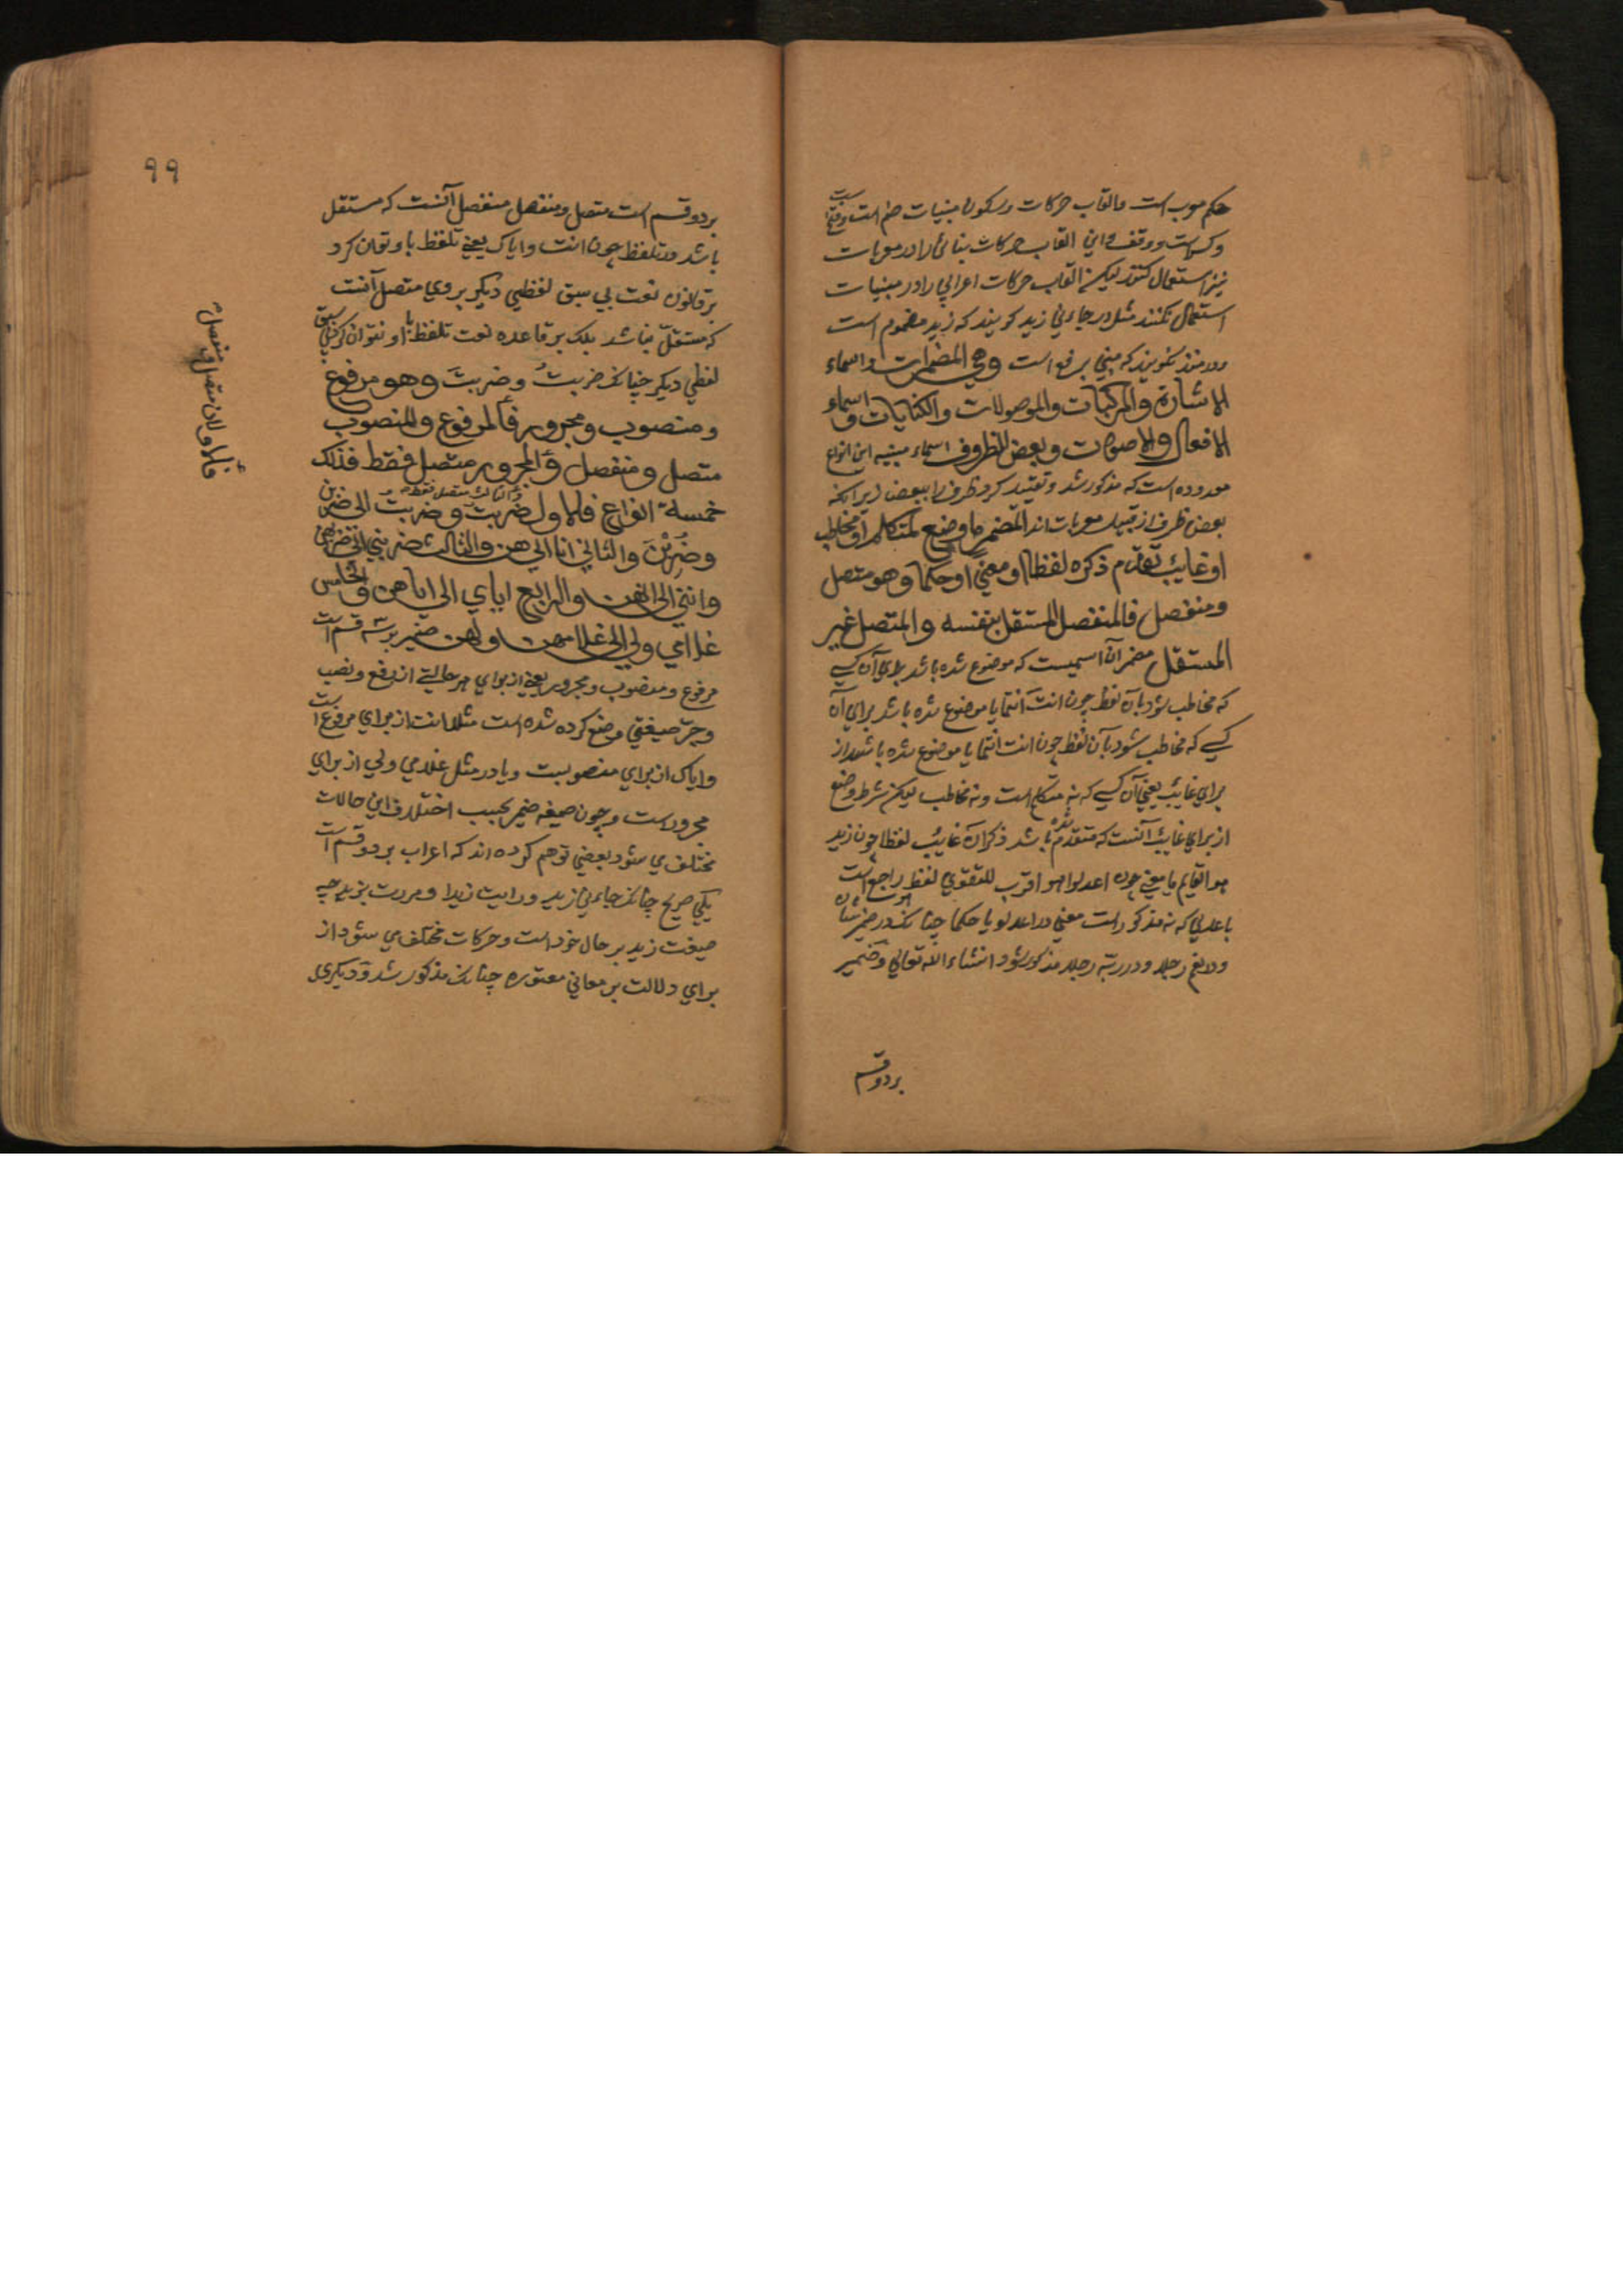 حکم معرب است والقاب حرکات وسکون مبنیات ضم است وفتح است
وکسر است ووقف واین القاب حرکات بنائی را در معربات
نیز استعمال کنند لیکن القاب حرکات اعرابی را در مبنیات
استعمال نکنند مثلا در جاءنی زید کویند که زید مضموم است
ودر منذ نکویند که مبنی بر رفع است وهي المضمرات واسماء
الاشارة والمركبات والموصولات والكنايات واسماء
الافعال والاصوات وبعض الظروف اسماء مبنیه این انواع
معدوده است که مذکور شد وتقیید کرد ظروف را ببعض زیرانکه
بعض ظروف از قبیل معربات اند المضمر ما وضع لمتكلم او مخاطب
او غايب تقدم ذكره لفظا او معنى او حكما وهو متصل
ومنفصل فالمنفصل المستقل بنفسه والمتصل غير
المستقل مضمر آن اسمیست که موضوع شده باشد برای آن کسی
که مخاطب شود بآن لفظ چون انت انتما یا موضوع شده باشد برای آن
کسی که مخاطب شود بآن لفظ چون انت انتما یا موضوع شده باشد از
برای غایب یعنی آن کسی که نه متکلم است ونه مخاطب لیکن شرط وضع
از برای غایب آنست که متقدم شده باشد ذکر آن غایب لفظا چون زید
هو القایم یا معنی چون اعدلوا هو اقرب للتقوی لفظ هو راجع است
باعدلی که نه مذکور است معنی در اعدلوا یا حکما چنانکه در ضمیر شان
ودر نعم رجلا ودر ربه رجلا مذکور شود انشاء الله تعالی وضمیر
بر دو قسم
۹۹
بر دو قسم است متصل ومنفصل منفصل آنست که مستقل
باشد در تلفظ چون انت وایاک یعنی تلفظ باو توان کرد
بر قانون لغت بی سبق لفظی دیکر بر وی متصل آنست
که مستقل نباشد بلکه بر قاعده لغت تلفظ باو نتوان کرد بی سبق
لفظی دیکر چنانکه ضربتُ وضربتَ وهو مرفوع
ومنصوب ومجرور فالمرفوع والمنصوب
متصل ومنفصل والمجرور متصل فقط فذلك
خمسة انواع فالاول ضربت وضربت الى ضربن
والثالث متصل فقط
وضربن والثاني انا الى هن والثالث ضربني الى ضربهن
وانني الى انهن والرابع اياي الى اياهن والخامس
غلامي ولي الى غلامهن ولهن ضمیر بر سه قسم است
مرفوع ومنصوب ومجرور یعنی از برای هر حالتی از رفع ونصب
وجر صیغتی وضع کرده شده است مثلا انت از برای مرفوع است
وایاک از برای منصوبست ویا در مثل غلامی ولی از برای
مجرورست وچون صیغه ضمیر بحسب اختلاف این حالات
مختلف می شود بعضی توهم کرده اند که اعراب بر دو قسم است
یکی صریح چنانکه جاءنی زید ورایت زیدا ومررت بزید چه
صیغت زید بر حال خود است وحرکات مختلف می شود از
برای دلالت بر معانی معتوره چنانکه مذکور شد ودیکری
فالاولان متصل ومنفصل